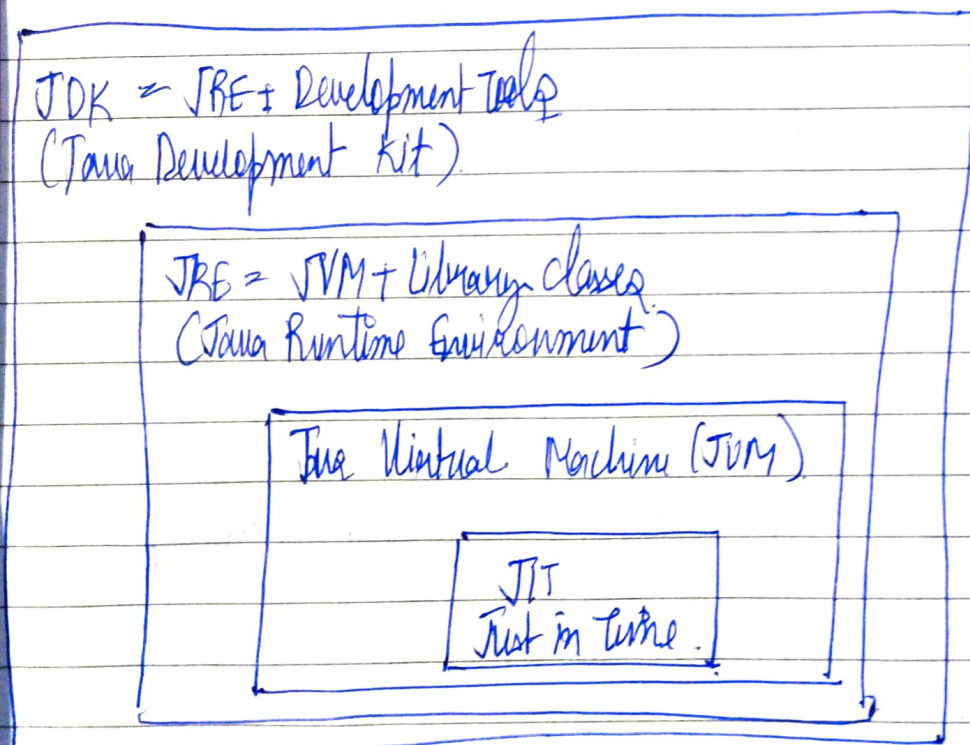 JDK = JRE + Development Tools
(Java Development Kit)
JRE = JVM + Library classes
(Java Runtime Environment)
Java Virtual Machine (JVM)
JIT
Just in time.